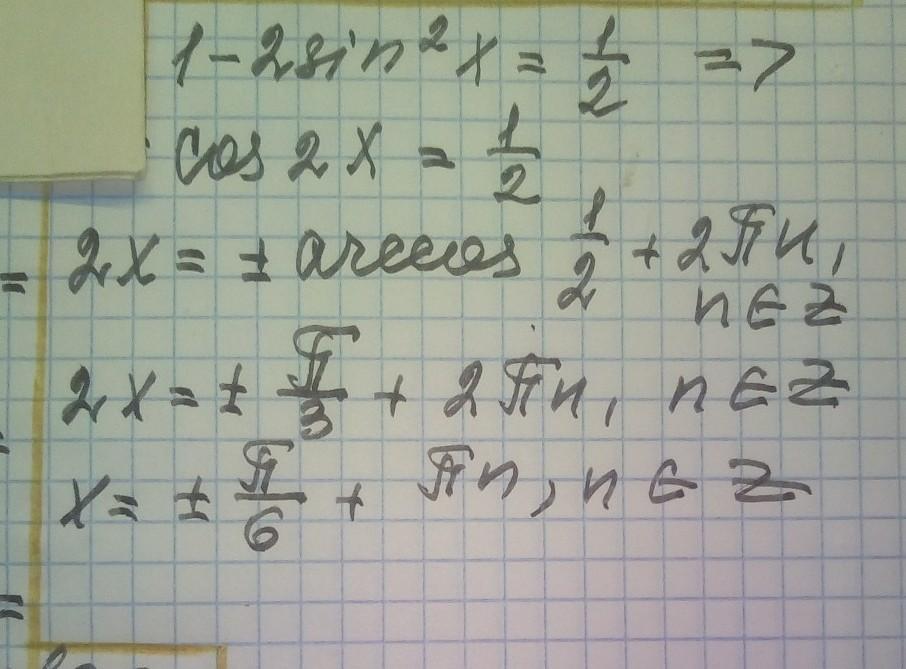 1-2sin²x = 1/2 =>
cos 2x = 1/2
2x = ± arccos 1/2 + 2πn,
n∈Z
2x = ± π/3 + 2πn, n∈Z
x = ± π/6 + πn, n∈Z